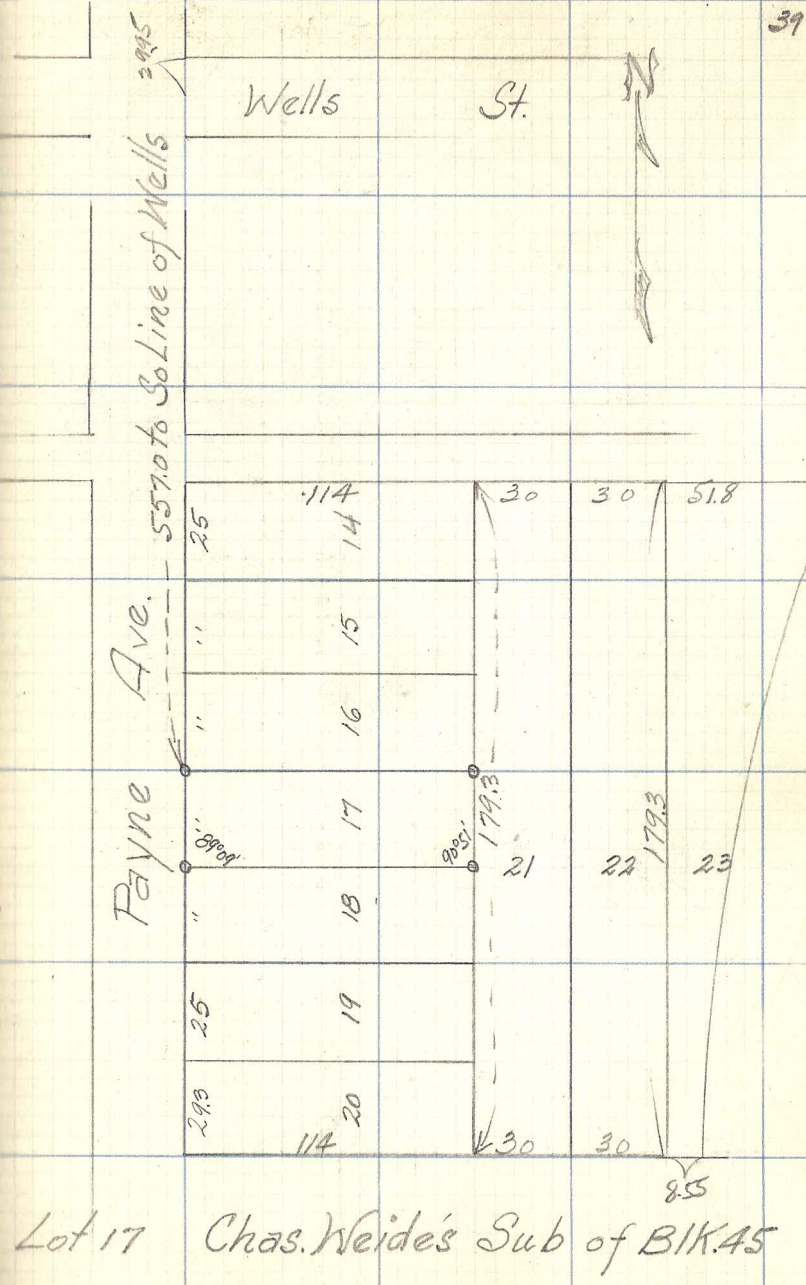 39
29.45
Wells St.
N
Payne Ave.
557.0 to So Line of Wells
114 30 30 51.8
25 14
" 15
" 16
" 17
89°09' 90°51'
179.3 179.3
21 22 23
" 18
25 19
29.3 20
114 30 30
8.55
Lot 17 Chas. Weide's Sub of Blk. 45